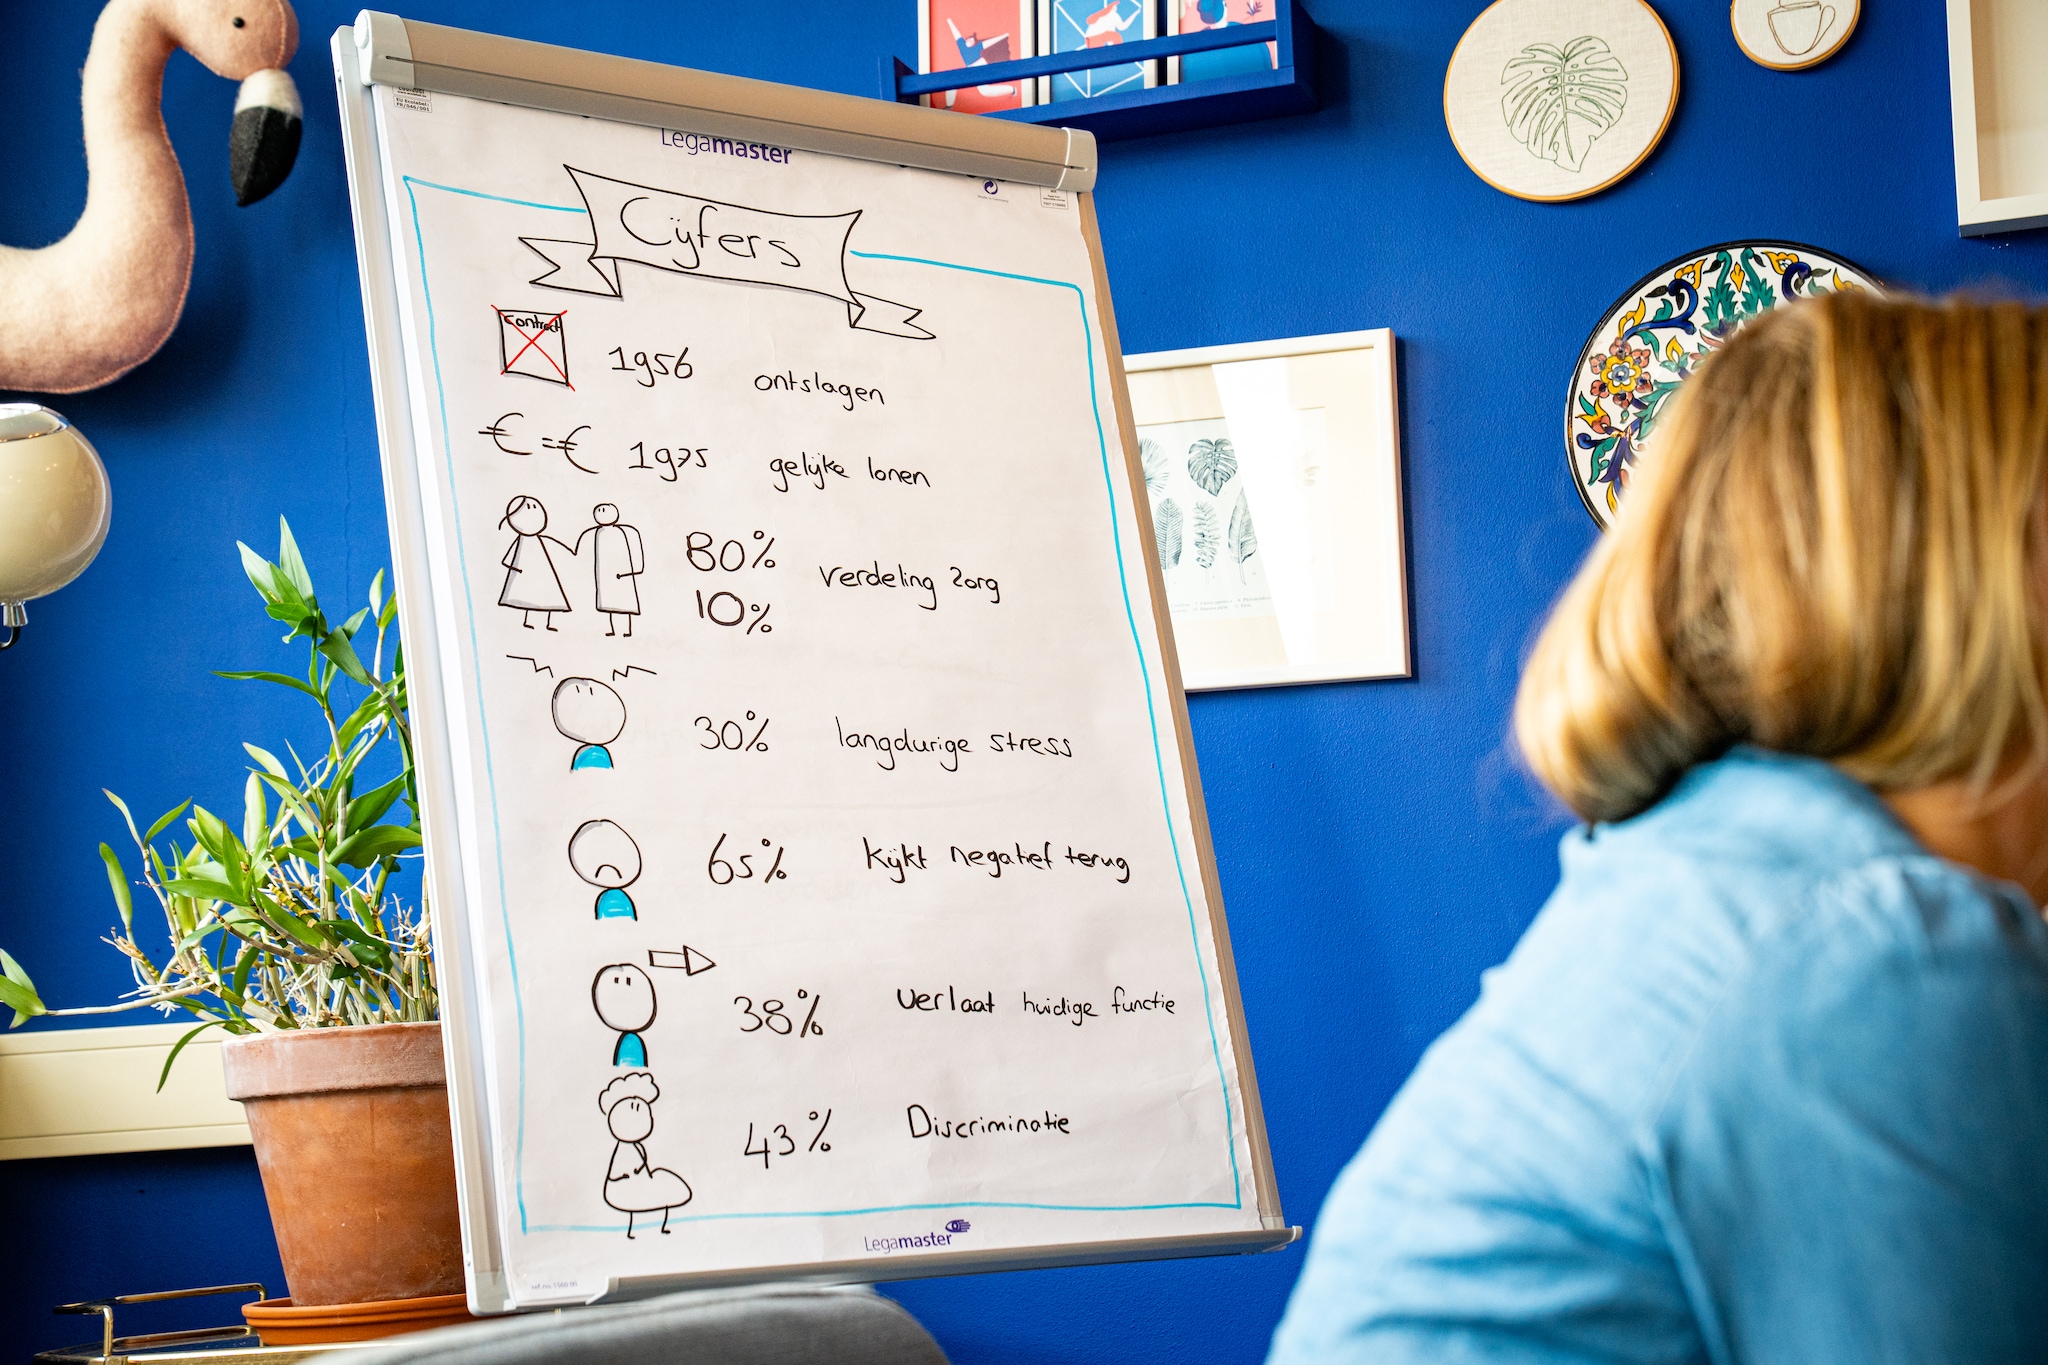 EU Ecolabel:
FR/046/001
Legamaster
Cijfers
contract
1956 ontslagen
€ = € 1975 gelijke lonen
80%
10%
verdeling zorg
30% langdurige stress
65% kijkt negatief terug
38% verlaat huidige functie
43% Discriminatie
Legamaster